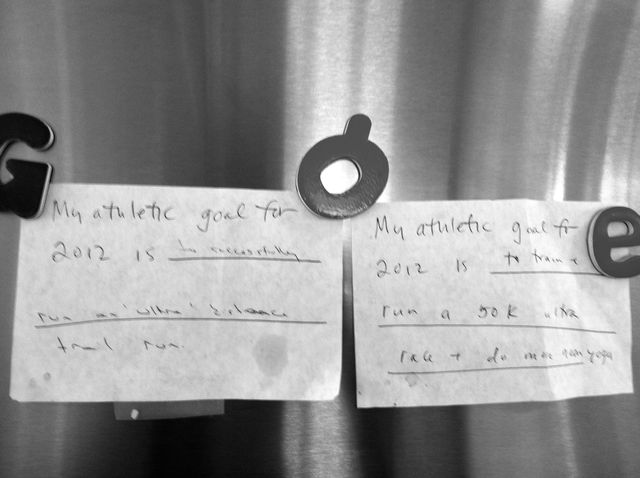 G
My athletic goal for
2012 is to successfully
run an 'ultra' distance
trail run.
d
My athletic goal for
2012 is to train +
run a 50K ultra
race + do more yoga
e